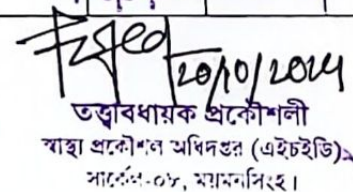 ২০/১০/২০২৪
তত্ত্বাবধায়ক প্রকৌশলী
স্বাস্থ্য প্রকৌশল অধিদপ্তর (এইচইডি)
সার্কেল-০৮, ময়মনসিংহ।